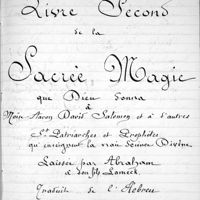 Livre Second
de la
Sacrée Magie
que Dieu donna
à
Moïse Aaron David Salomon et à d'autres
Sts Patriarches et Prophètes
qui enseignent la vraie Divine
Laissée par Abraham
à son fils Lameck
Traduite de l'Hébreu